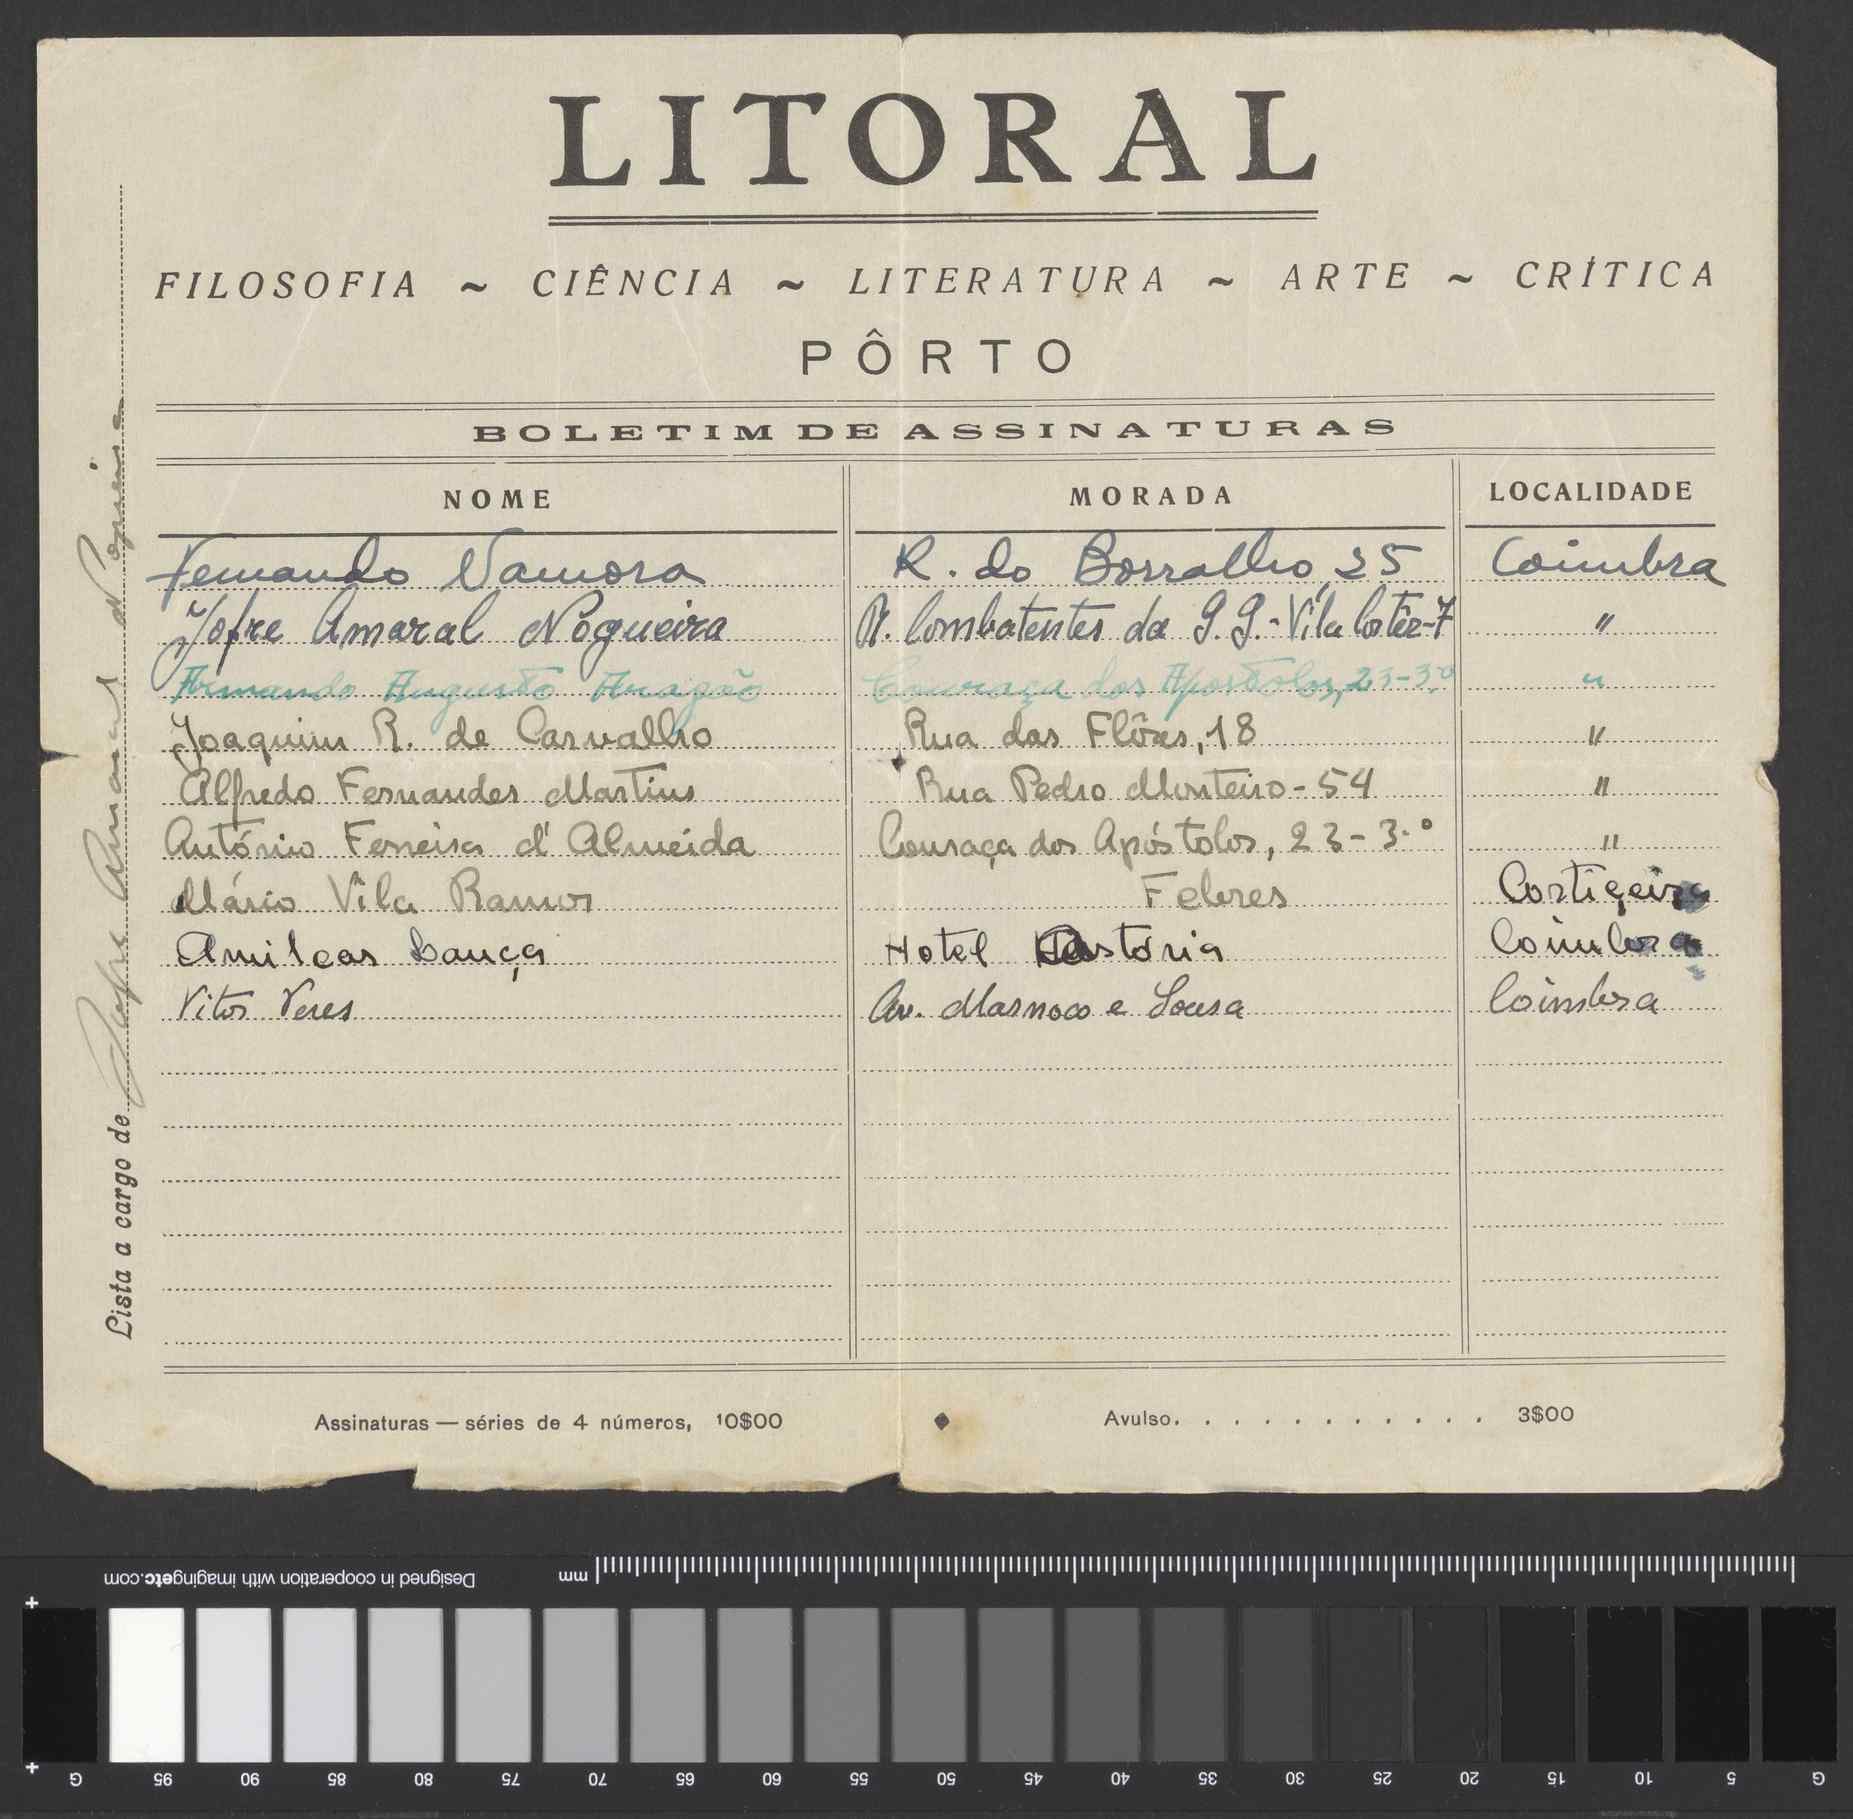 LITORAL
FILOSOFIA ~ CIÊNCIA ~ LITERATURA ~ ARTE ~ CRÍTICA
PÔRTO
BOLETIM DE ASSINATURAS
NOME MORADA LOCALIDADE
Fernando Namora R. do Borralho, 25 Coimbra
Jofre Amaral Nogueira R. Combatentes da G. G. - Vila 7 "
Armando Augusto Aragão Couraça dos Apostolos, 23-3.º "
Joaquim R. de Carvalho Rua das Flôres, 18 "
Alfredo Fernandes Martins Rua Pedro Monteiro - 54 "
António Ferreira d'Almeida Couraça dos Apóstolos, 23-3.º "
Mário Vila Ramos Febres Cortiçeira
Amilcar Lança Hotel Astória Coimbra
Vitor Veres Av. Marnoco e Sousa Coimbra
Lista a cargo de Jofre Amaral Nogueira
Assinaturas — séries de 4 números, 10$00 ♦ Avulso. . . . . . . . . . . . 3$00
Designed in cooperation with imagingetc.com mm
G 95 90 85 80 75 70 65 60 55 50 45 40 35 30 25 20 15 10 5 G